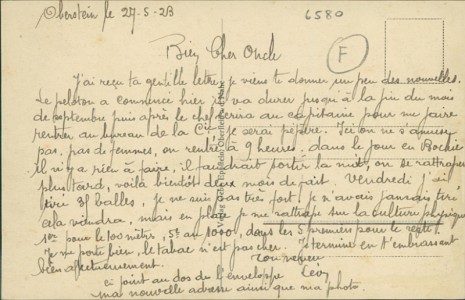 Oberstein le 27-5-23
6580
F
Bien Cher Oncle
J'ai reçu ta gentille lettre, je viens te donner un peu des nouvelles.
Le peloton a commencé hier, je va durer jusqu'à la fin du mois
de septembre puis après le chef écrira au capitaine pour me faire
rentrer au bureau de la Cie je serai pépère. Ici on ne s'amuse
pas, pas de femmes, on rentre à 9 heures, dans le jour en Bochie
il n'y a rien à faire, il faudrait sortir la nuit, on se rattrapera
plus tard, voilà bientôt deux mois de fait. Vendredi j'ai
tiré 31 balles, je ne suis pas très fort, je n'avais jamais tiré
cela viendra, mais en place je me rattrape sur la culture physique
1er pour le 100 mètre, 5e au 1000, dans les 5 premiers pour le reste.
Je me porte bien, le tabac n'est pas cher. Je termine en t'embrassant
bien affectueusement.
Ton neveu
Léon
ci joint au dos de l'enveloppe
ma nouvelle adresse ainsi que ma photo.